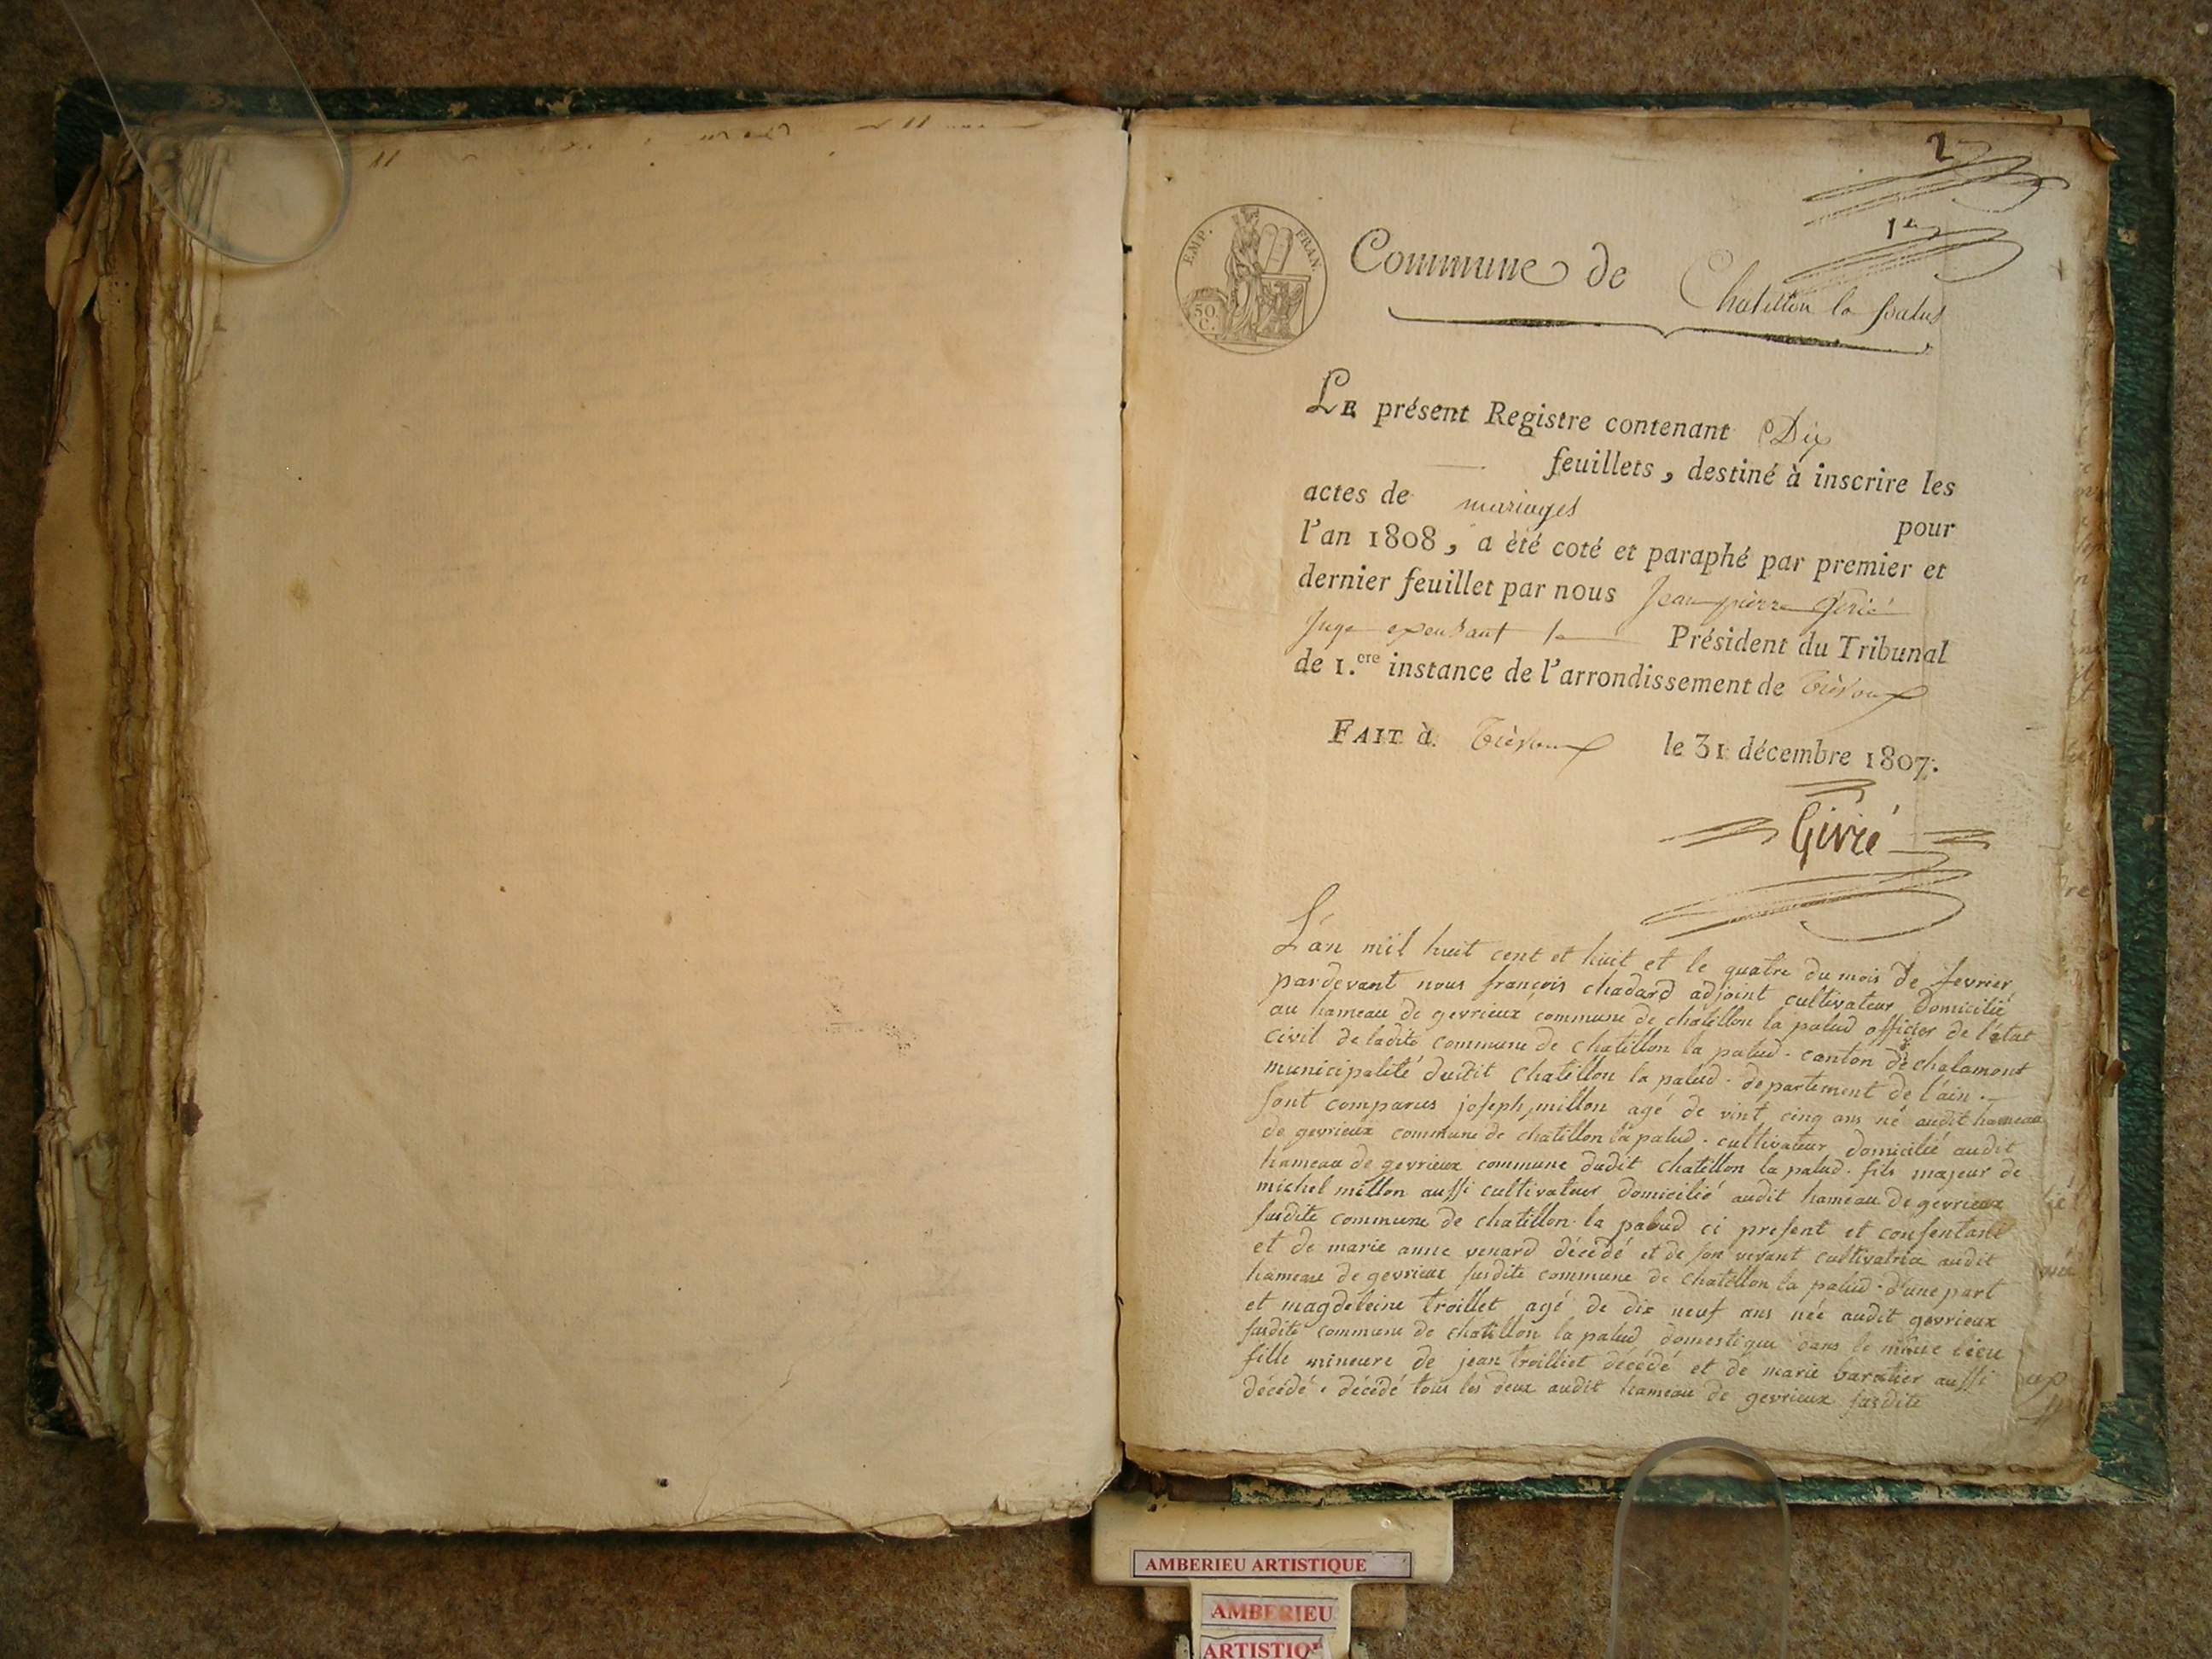 2
1er
EMP. FRAN.
50 C.
Commune de Chatillon la palud
LE présent Registre contenant Dix
feuillets, destiné à inscrire les
actes de mariages pour
l'an 1808, a èté coté et paraphé par premier et
dernier feuillet par nous Jean pierre Givié
Juge exerçant le Président du Tribunal
de 1.ere instance de l'arrondissement de Trévoux
FAIT à Trévoux le 31 décembre 1807.
Givré
L'an mil huit cent et huit et le quatre du mois de fevrier
pardevant nous françois chadard adjoint cultivateur domicilié
au hameau de gevrieux commune de chatillon la palud officier de l'état
civil de ladite commune de chatillon la palud. canton de chalamont
municipalité dudit chatillon la palud. departement de l'ain.
sont comparus joseph millon agé de vint cinq ans né audit hameau
de gevrieux commune de chatillon la palud. cultivateur domicilié audit
hameau de gevrieux commune dudit chatillon la palud. fils majeur de
michel millon aussi cultivateur domicilié audit hameau de gevrieux
susdite commune de chatillon la palud ci present et consentant
et de marie anne venard décédé et de son vivant cultivatrice audit
hameau de gevrieux susdite commune de chatillon la palud. d'une part
et magdeleine troillet agé de dix neuf ans née audit gevrieux
susdite commune de chatillon la palud domestique dans le même lieu
fille mineure de jean troilliet décédé et de marie baratier aussi
décédé. décédé tous les deux audit hameau de gevrieux susdite
AMBERIEU ARTISTIQUE
AMBERIEU
ARTISTIQU